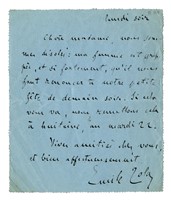 lundi soir
Chère madame, nous som-
mes désolés: ma femme est grip-
pée, et si fortement, qu'il nous
faut renoncer à notre petite
fête de demain soir. Si cela
vous va, nous remettrons cela
à huitaine, au mardi 22.
Vives amitiés chez vous,
et bien affectueusement
Emile Zola